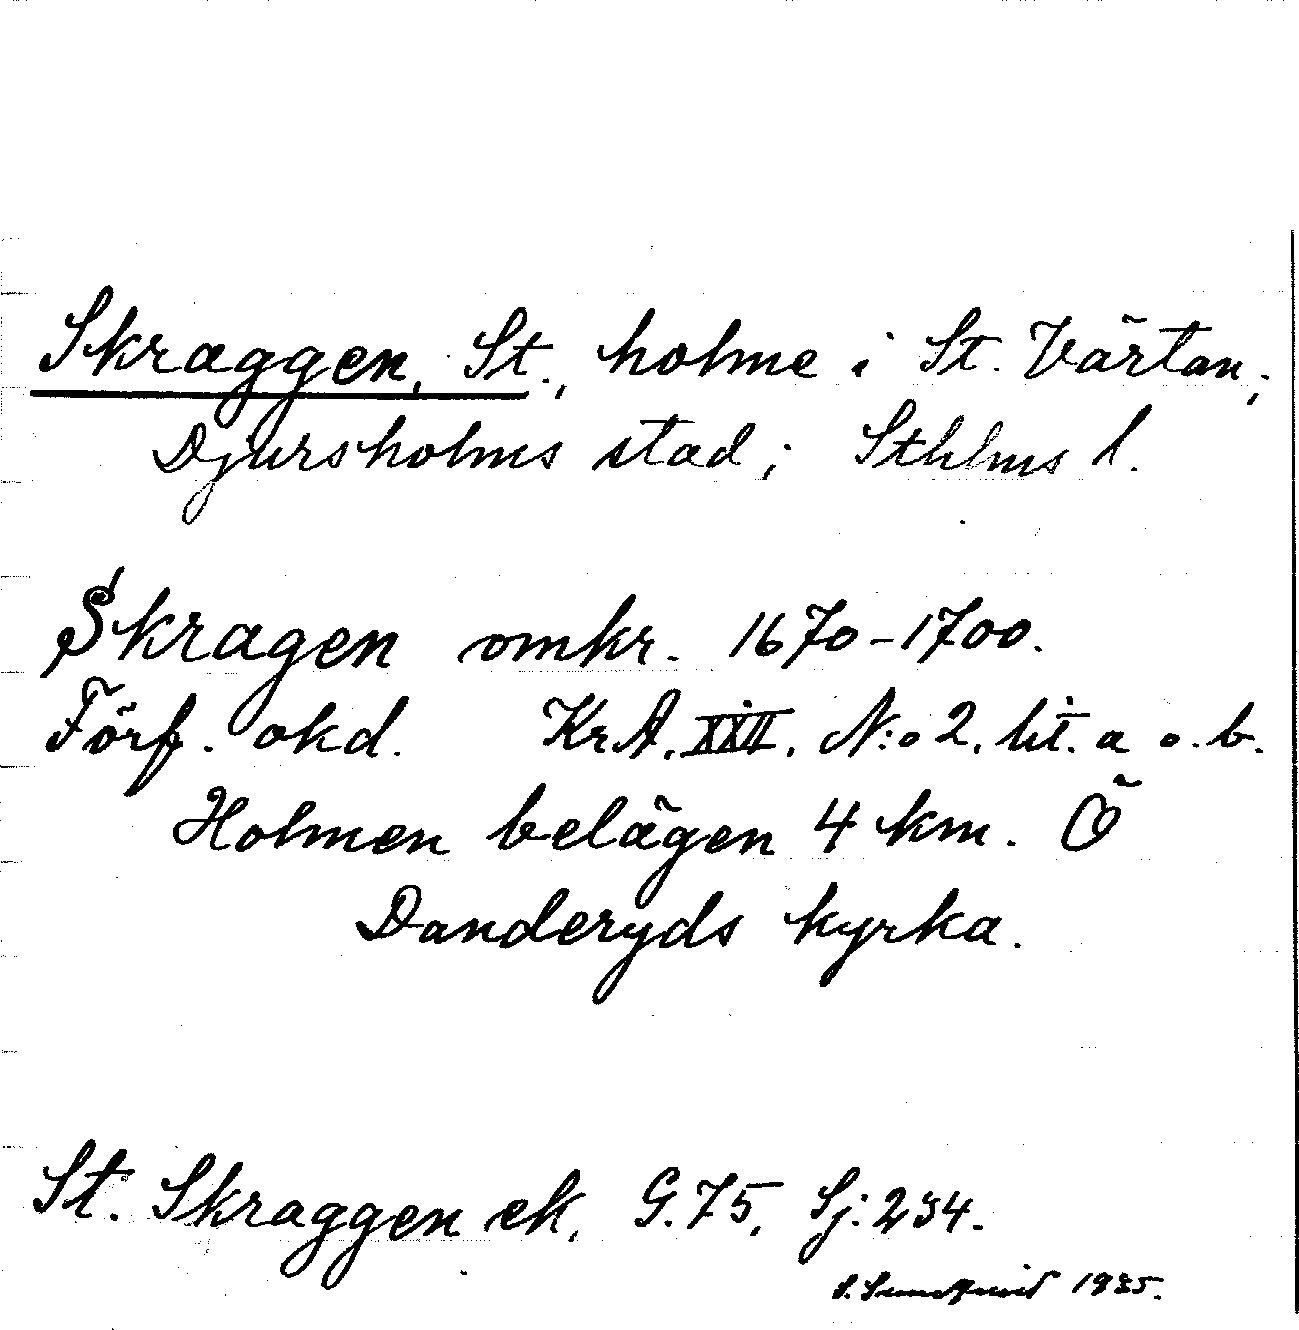 Skraggen, St., holme i St. Värtan;
Djursholms stad; Sthlms l.
Skragen omkr. 1670-1700.
Förf. okd. KrA. XXII. N:o 2. lit. a o. b.
Holmen belägen 4 km. Ö
Danderyds kyrka.
St. Skraggen ek. G. 75, Sj. 234.
S. Sundqvist 1935.